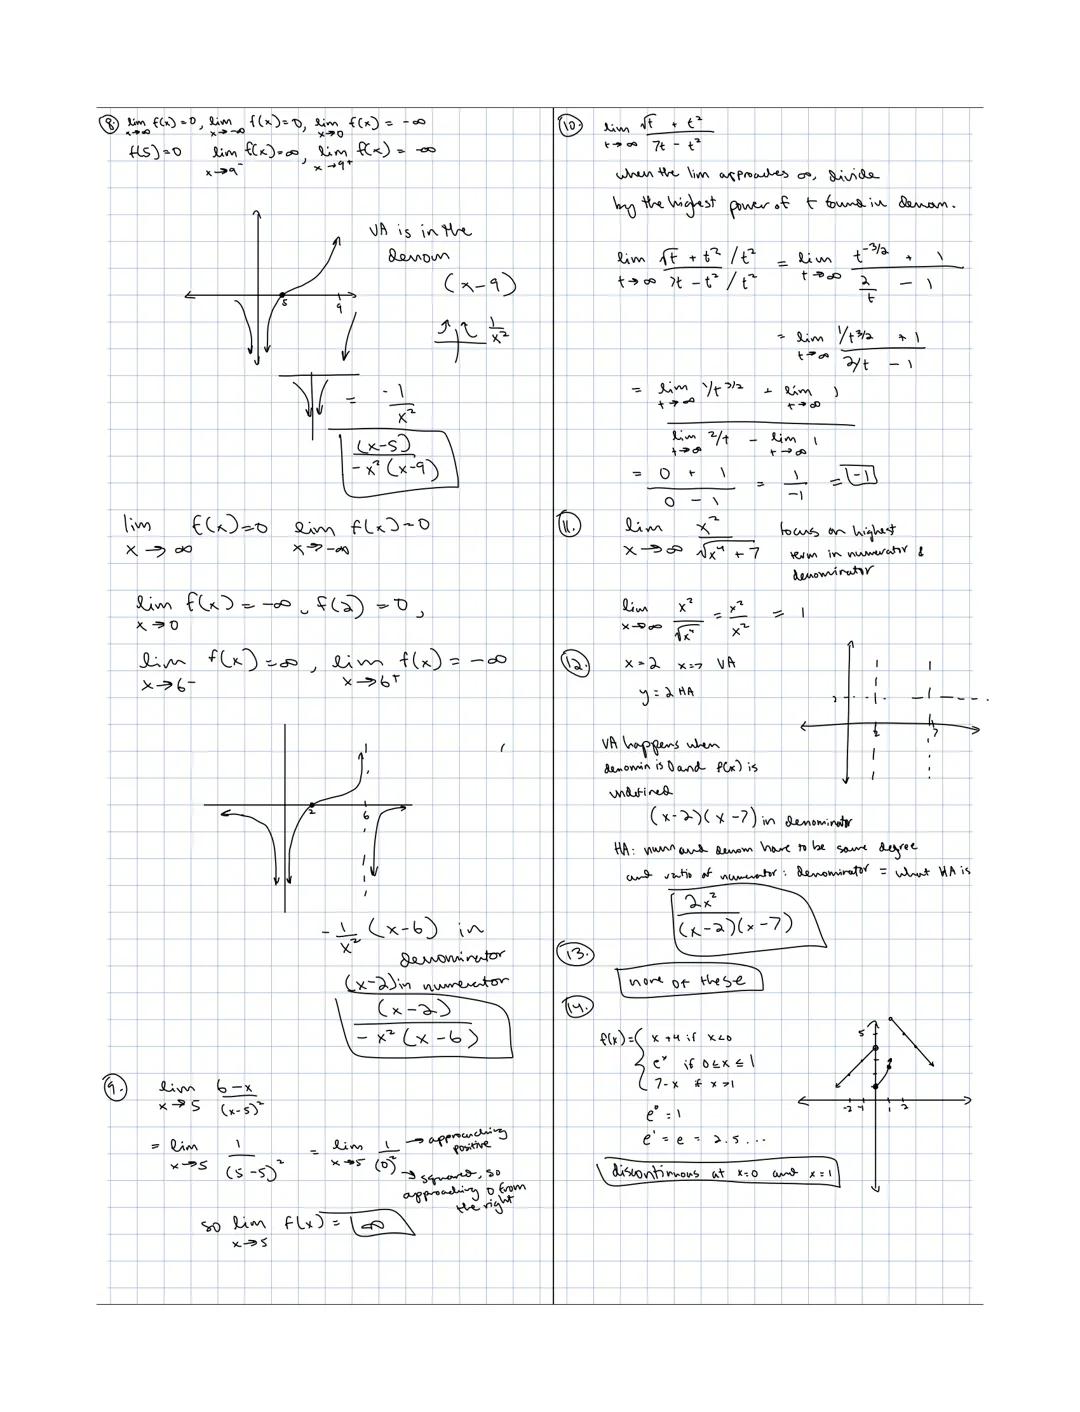 8. lim x→∞ f(x) = 0, lim x→-∞ f(x) = 0, lim x→0 f(x) = -∞
f(5) = 0 lim x→9⁻ f(x) = ∞, lim x→9⁺ f(x) = -∞
VA is in the
denom
(x-9)
5
9
1/x²
= -1/x²
(x-5)/(-x²(x-9))
lim x→∞ f(x) = 0 lim x→-∞ f(x) = 0
lim x→0 f(x) = -∞, f(2) = 0,
lim x→6⁻ f(x) = ∞, lim x→6⁺ f(x) = -∞
2
6
-1/x² (x-6) in
denominator
(x-2) in numerator
(x-2)/(-x²(x-6))
9. lim x→5 (6-x)/(x-5)²
= lim x→5 1/(5-5)² = lim x→5 1/(0)² → approaching
positive
→ squared, so
approaching 0 from
the right
so lim x→5 f(x) = ∞
10. lim t→∞ (√t + t²)/(7t - t²)
when the lim approaches ∞, divide
by the highest power of t found in denom.
lim t→∞ (√t + t² / t²)/(7t - t² / t²) = lim t→∞ (t^(-3/2) + 1)/(2/t - 1)
= lim t→∞ (1/t^(3/2) + 1)/(2/t - 1)
= (lim t→∞ 1/t^(3/2) + lim t→∞ 1)/(lim t→∞ 2/t - lim t→∞ 1)
= (0 + 1)/(0 - 1) = 1/-1 = -1
11. lim x→∞ x²/√(x⁴ + 7) focus on highest
term in numerator &
denominator
lim x→∞ x²/√x⁴ = x²/x² = 1
12. x=2 x=7 VA
y=2 HA
2
2
7
VA happens when
denomin is 0 and f(x) is
undefined
(x-2)(x-7) in denominator
HA: num and denom have to be same degree
and ratio of numerator : denominator = what HA is
2x²/((x-2)(x-7))
13.
none of these
14.
f(x) = { x+4 if x<0
e^x if 0≤x≤1
7-x if x>1
e⁰ = 1
e¹ = e = 2.5...
5
-2 -1 1 2
discontinuous at x=0 and x=1